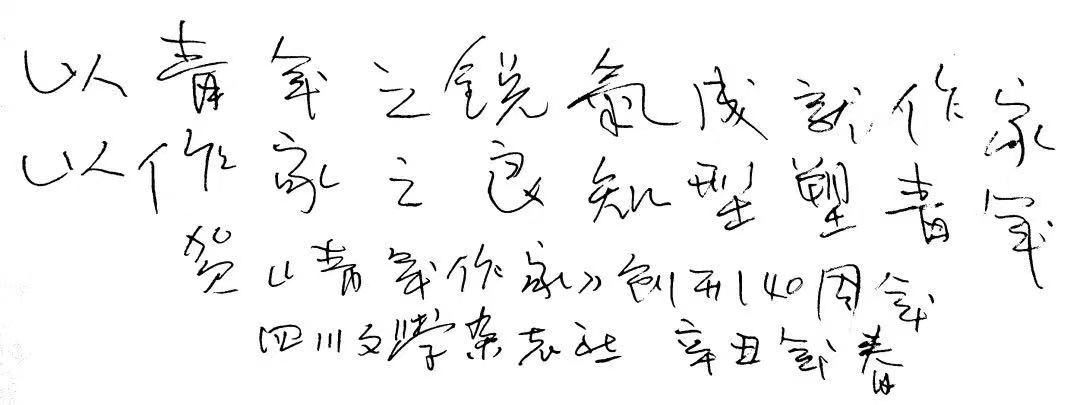 以青年之銳氣成就作家
以作家之良知型塑青年
贺《青年作家》创刊40周年
四川文學杂志社 辛丑年春